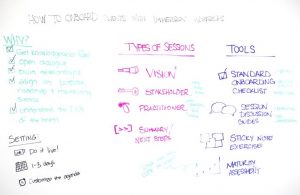 HOW TO ONBOARD CLIENTS WITH IMMERSION WORKSHOPS
WHY?
Get knowledge
Open dialogue
Build relationships
align on purpose
roadmap & maturity
understand the
of the team
SETTING
Do it live!
1-3 days
Customize the agenda
TYPES OF SESSIONS
VISION
STAKEHOLDER
PRACTITIONER
SUMMARY/
NEXT STEPS
TOOLS
STANDARD
ONBOARDING
CHECKLIST
SESSION
DISCUSSION
GUIDES
STICKY NOTE
EXERCISE
MATURITY
ASSESSMENT